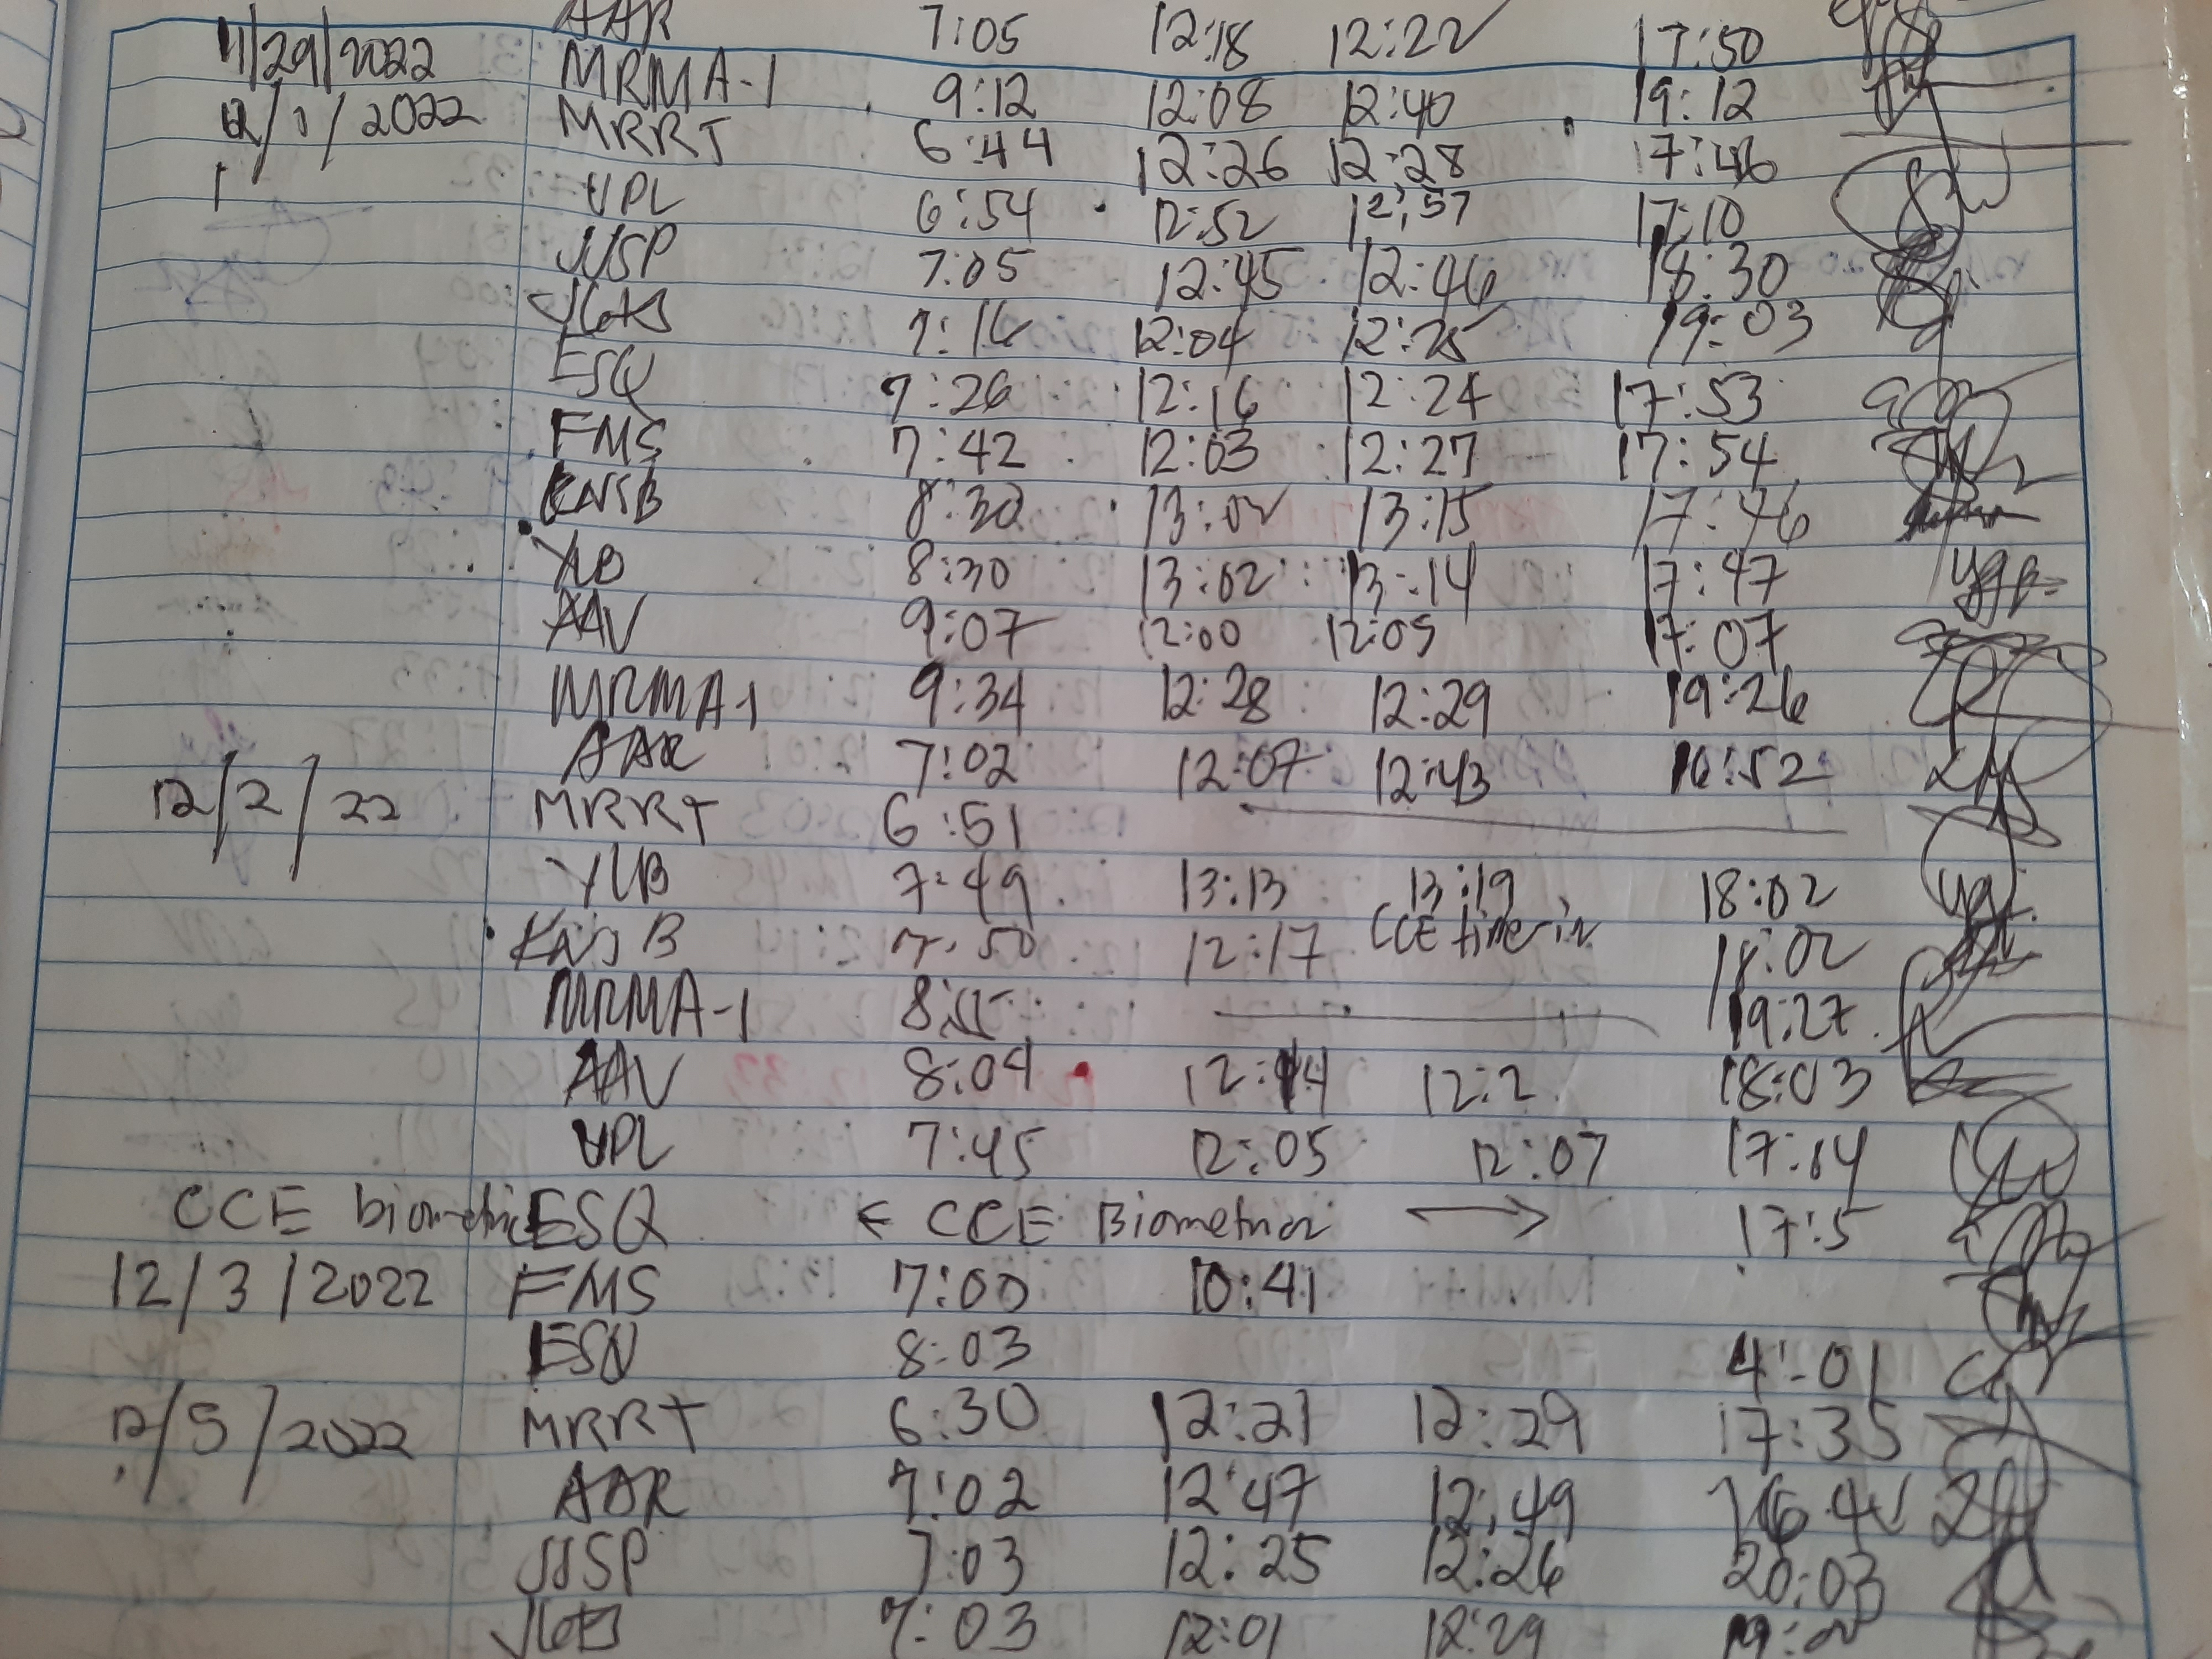 AAR 7:05 12:18 12:22 17:50
11/29/2022 MRMA-1 9:12 12:08 12:40 19:12
12/1/2022 MRRT 6:44 12:26 12:28 17:46
VPL 6:54 12:52 12:57 17:10
JJSP 7:05 12:45 12:46 18:30
7:16 12:04 12:25 19:03
ESQ 7:26 12:16 12:24 17:53
FMS 7:42 12:03 12:27 17:54
KNSB 8:30 13:02 13:15 17:46
8:30 13:02 13:14 17:47
AAV 9:07 12:00 12:05 17:07
MRMA-1 9:34 12:28 12:29 19:26
AAR 7:02 12:07 12:43 16:52
12/2/22 MRRT 6:51
YUB 7:49 13:13 13:19 18:02
KNSB 7:50 12:17 CCE time in 18:02
MRMA-1 19:27
AAV 8:04 12:14 12:2 18:03
VPL 7:45 12:05 12:07 17:14
CCE biometrics ESQ ← CCE Biometrics → 17:5
12/3/2022 FMS 7:00 10:41
ESQ 8:03 4:01
12/5/2022 MRRT 6:30 12:21 12:29 17:35
AAR 7:02 12:47 12:49
JJSP 7:03 12:25 12:26 20:03
7:03 12:01 12:29